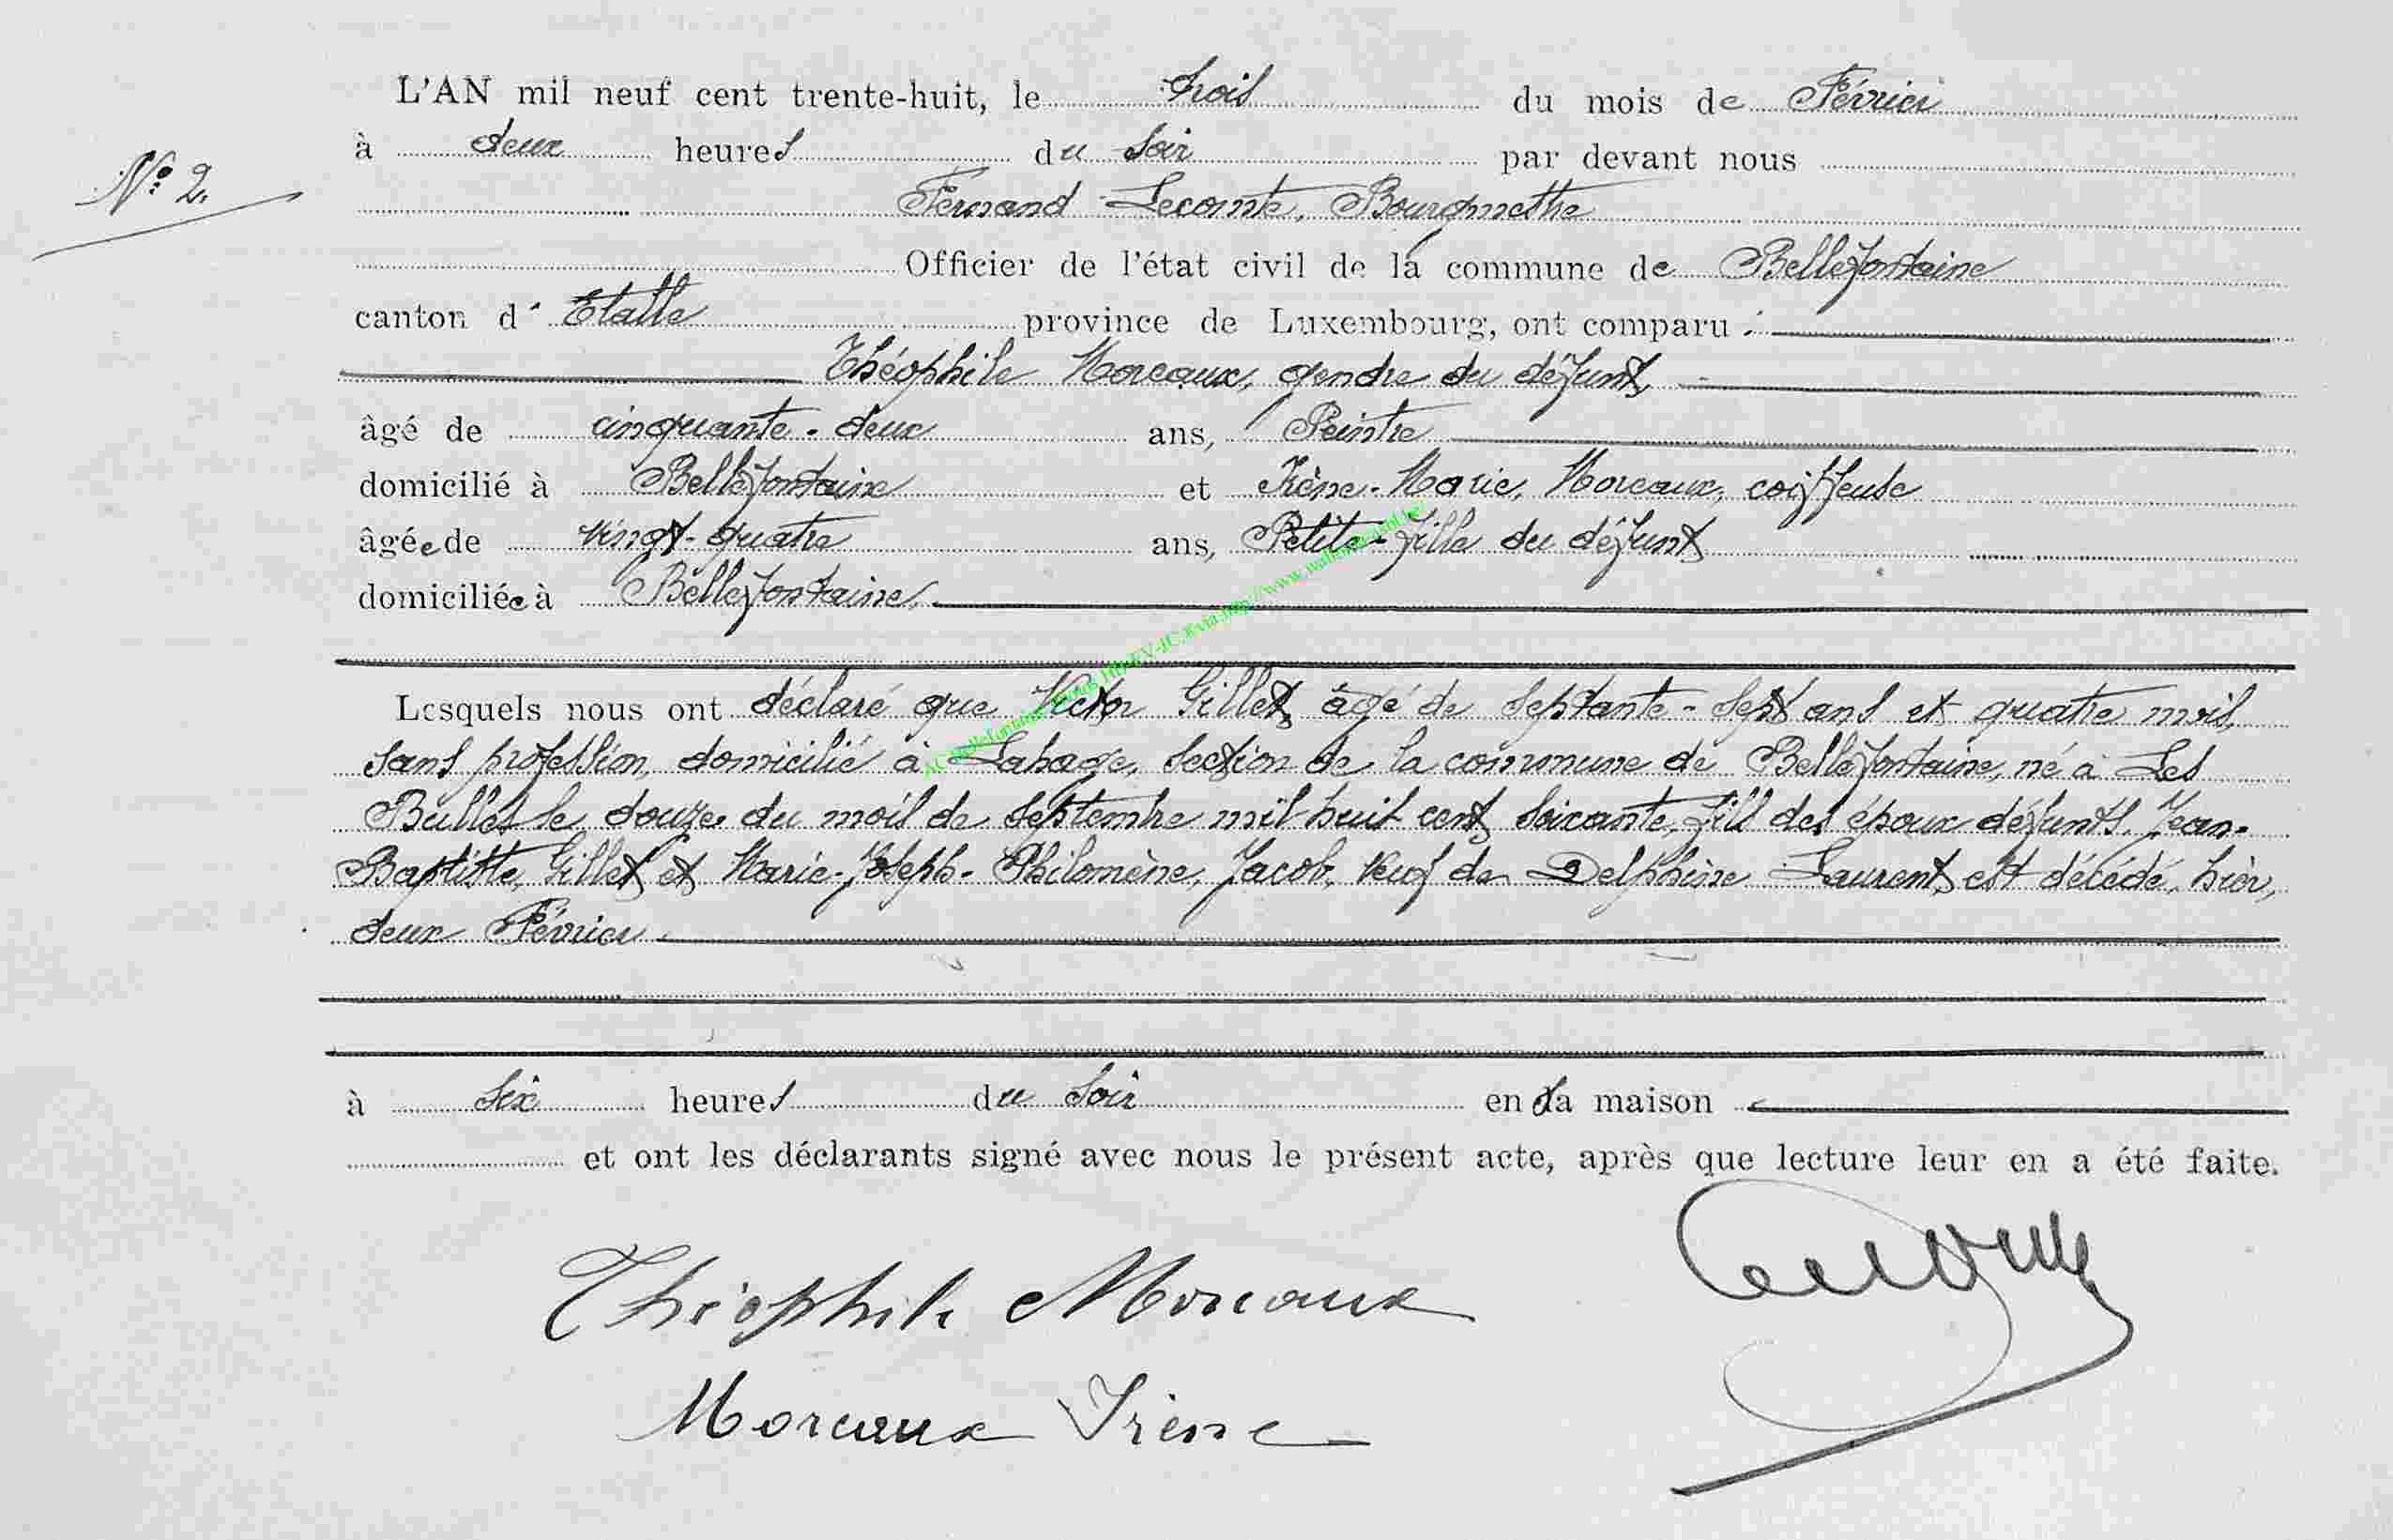 L'AN mil neuf cent trente-huit, le trois du mois de Février
à deux heures du soir par devant nous
N° 2.
Fernand Lecomte, Bourgmestre
Officier de l'état civil de la commune de Bellefontaine
canton d' Etalle province de Luxembourg, ont comparu :
Théophile Morcaux, gendre du défunt,
âgé de cinquante-deux ans, Peintre
domicilié à Bellefontaine et Irène-Marie, Morcaux, coiffeuse
âgée de vingt-quatre ans, Petite-fille du défunt
domiciliée à Bellefontaine.
Lesquels nous ont déclaré que Victor Gillet, âgé de septante-sept ans et quatre mois,
sans profession, domicilié à Lahage, section de la commune de Bellefontaine, né à Les
Bulles le douze du mois de septembre mil huit cent soixante, fils des époux défunts, Jean-
Baptiste, Gillet et Marie-Joseph-Philomène, Jacob, veuf de Delphine Laurent, est décédé, hier,
deux Février
à six heures du soir en sa maison
et ont les déclarants signé avec nous le présent acte, après que lecture leur en a été faite.
Théophile Morcaux
Morcaux Irène